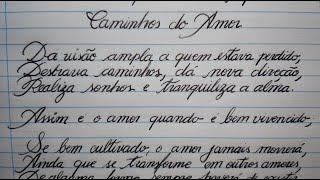 Caminhos do Amor
Da visão ampla a quem estava perdido,
Destrava caminhos, dá nova direção,
Realiza sonhos e tranquiliza a alma.
Assim é o amor quando é bem vivenciado,
Se bem cultivado, o amor jamais morrerá,
Ainda que se transforme em outros amores,
De alguma forma sempre haverá de existir